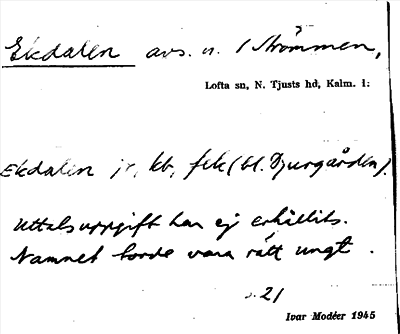 Ekdalen avs. u. / Strömmen,
Lofta sn, N. Tjusts hd, Kalm. l:
Ekdalen jr, kb, fek (bl. Djurgården).
Uttalsuppgift har ej erhållits.
Namnet torde vara rätt ungt.
21
Ivar Modéer 1945